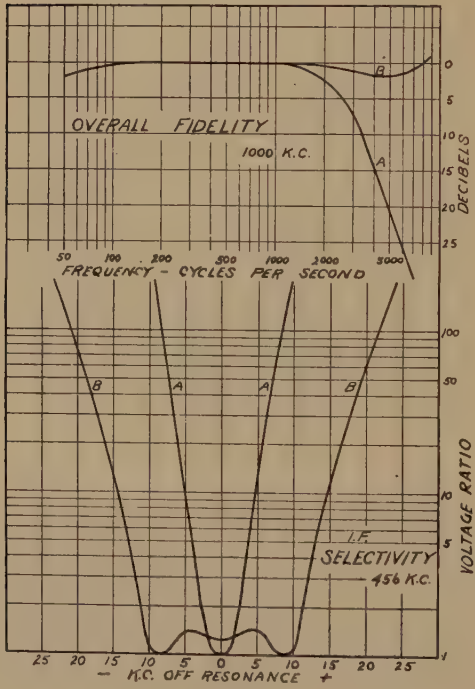 B
OVERALL FIDELITY
1000 K.C.
A
0
5
10
15
20
25
DECIBELS
50 100 200 500 1000 2000 3000
FREQUENCY - CYCLES PER SECOND
B A A B
100
50
10
5
1
VOLTAGE RATIO
I.F.
SELECTIVITY
456 K.C.
25 20 15 10 5 0 5 10 15 20 25
- K.C. OFF RESONANCE +